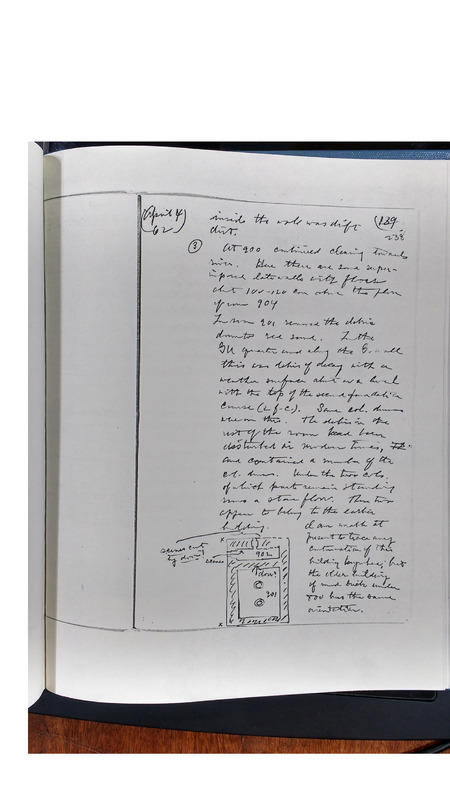 (April 4
62)
(139
238
inside the walls was drift
dirt.
(3) At 900 continued clearing towards
river. Here there are some super-
imposed late walls with floors
abt 100-120 cm above the floor
of room 904
In room 901 removed the debris
down to red sand. In the
SW quarter and along the E. wall
this was debris of decay with a
weather surface about on a level
with the top of the second foundation
course (2 f-c). Some col. drums
were on this. The debris in the
rest of the room had been
disturbed in modern times,
and contained a number of the
col. drums. Under the two cols.
of which parts remain standing
runs a stone floor. These two
appear to belong to the earlier
building.
I am unable at
present to trace any
continuation of this
building but
the older building
of mud brick under
900 has the same
orientation.
x
902
door
901
x